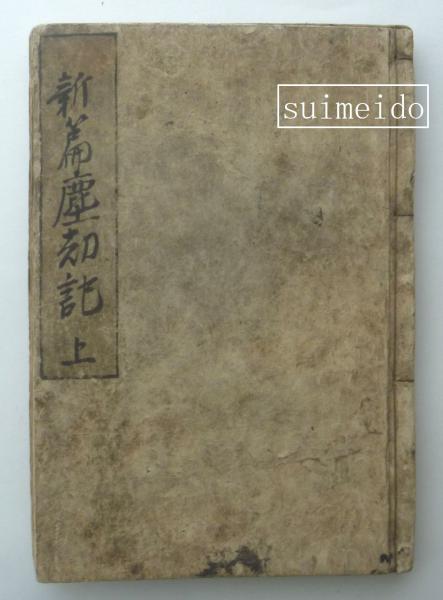 新篇塵劫記 上
suimeido